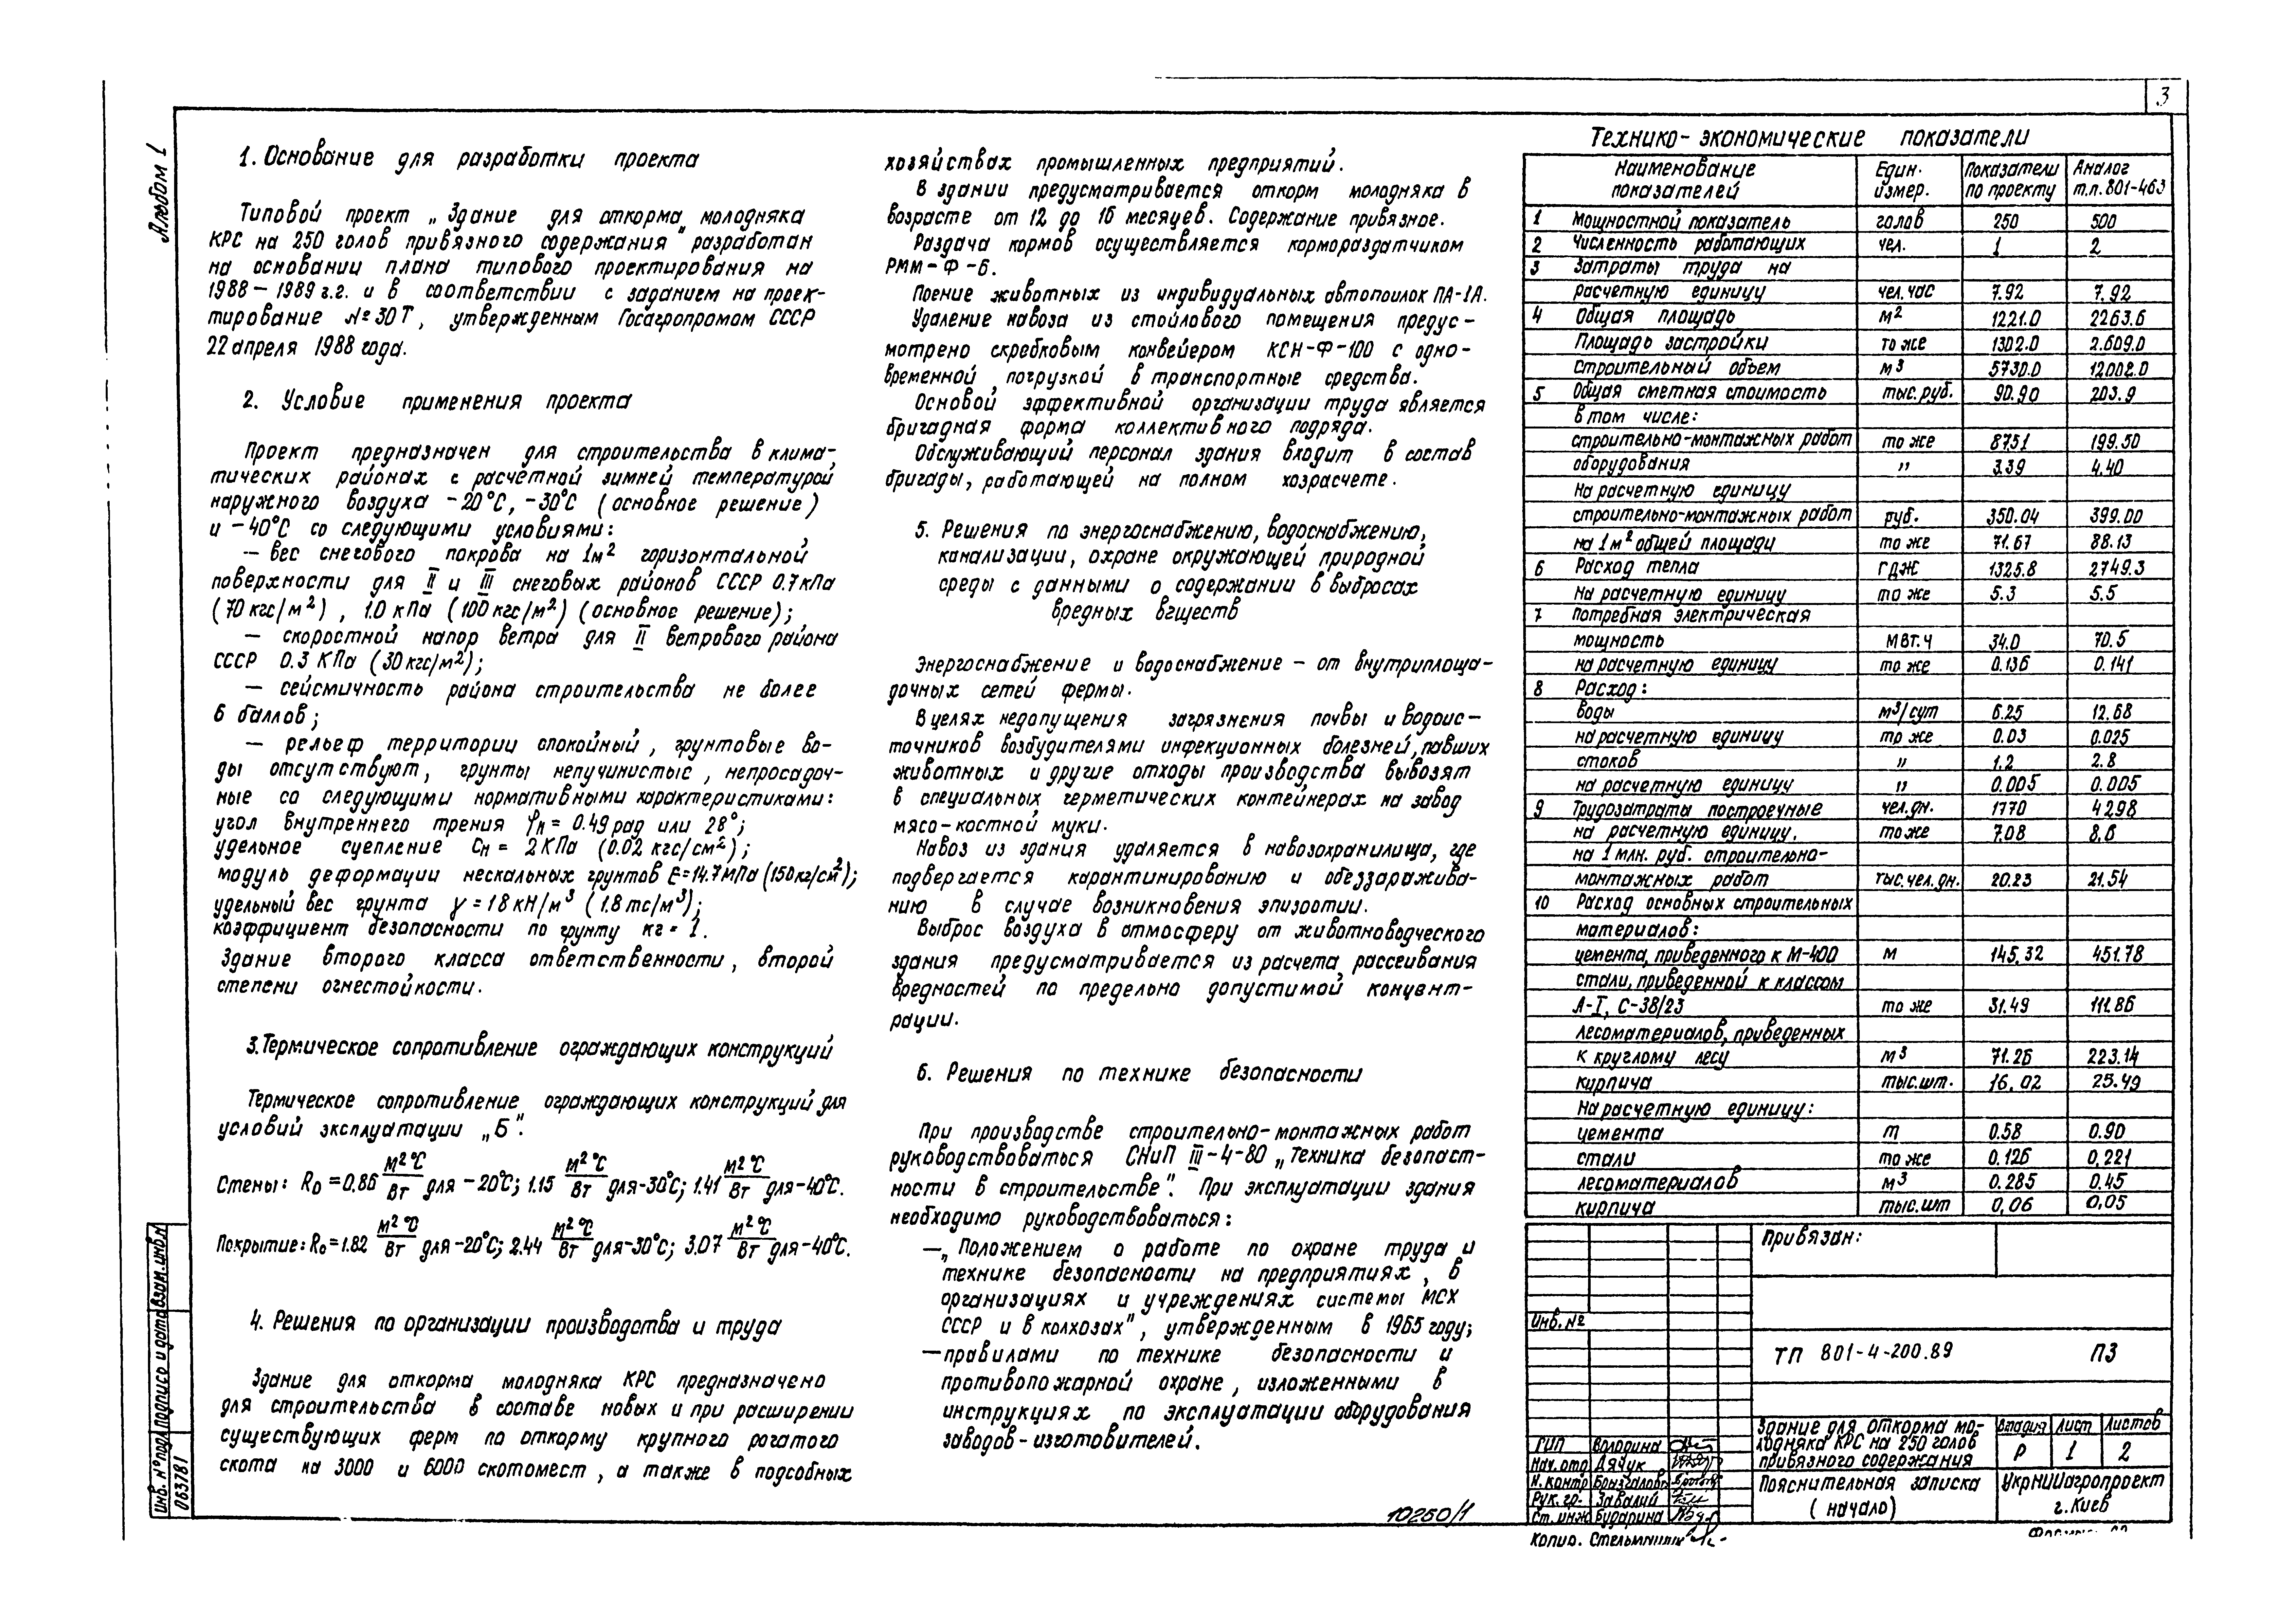 3
Альбом 1
1. Основание для разработки проекта
Типовой проект „Здание для откорма молодняка
КРС на 250 голов привязного содержания" разработан
на основании плана типового проектирования на
1988-1989 г.г. и в соответствии с заданием на проек-
тирование №30Т, утвержденным Госагропромом СССР
22 апреля 1988 года.
2. Условие применения проекта
Проект предназначен для строительства в клима-
тических районах с расчётной зимней температурой
наружного воздуха -20°С, -30°С (основное решение)
и -40°С со следующими условиями:
— вес снегового покрова на 1м² горизонтальной
поверхности для II и III снеговых районов СССР 0.7кПа
(70 кгс/м²), 1.0 кПа (100 кгс/м²) (основное решение);
— скоростной напор ветра для II ветрового района
СССР 0.3 КПа (30 кгс/м²);
— сейсмичность района строительства не более
6 баллов;
— рельеф территории спокойный, грунтовые во-
ды отсутствуют, грунты непучинистые, непросадоч-
ные со следующими нормативными характеристиками:
угол внутреннего трения φн = 0.49 рад или 28°;
удельное сцепление Сн = 2КПа (0.02 кгс/см²);
модуль деформации нескальных грунтов Е=14.7МПа (150кг/см²);
удельный вес грунта γ = 18 кН/м³ (1.8 тс/м³);
коэффициент безопасности по грунту кг = 1.
Здание второго класса ответственности, второй
степени огнестойкости.
3. Термическое сопротивление ограждающих конструкций
Термическое сопротивление ограждающих конструкций для
условий эксплуатации „Б".
Стены: Rо = 0.86 м²°С/Вт для -20°С; 1.15 м²°С/Вт для -30°С; 1.41 м²°С/Вт для -40°С.
Покрытие: Rо = 1.82 м²°С/Вт для -20°С; 2.44 м²°С/Вт для -30°С; 3.07 м²°С/Вт для -40°С.
4. Решения по организации производства и труда
Здание для откорма молодняка КРС предназначено
для строительства в составе новых и при расширении
существующих ферм по откорму крупного рогатого
скота на 3000 и 6000 скотомест, а также в подсобных
хозяйствах промышленных предприятий.
В здании предусматривается откорм молодняка в
возрасте от 12 до 16 месяцев. Содержание привязное.
Раздача кормов осуществляется кормораздатчиком
РММ-Ф-6.
Поение животных из индивидуальных автопоилок ПА-1А.
Удаление навоза из стойлового помещения предус-
мотрено скребковым конвейером КСН-Ф-100 с одно-
временной погрузкой в транспортные средства.
Основой эффективной организации труда является
бригадная форма коллективного подряда.
Обслуживающий персонал здания входит в состав
бригады, работающей на полном хозрасчете.
5. Решения по энергоснабжению, водоснабжению,
канализации, охране окружающей природной
среды с данными о содержании в выбросах
вредных вгществ
Энергоснабжение и водоснабжение - от внутриплоща-
дочных сетей фермы.
В целях недопущения загрязнения почвы и водоис-
точников возбудителями инфекционных болезней, павших
животных и другие отходы производства вывозят
в специальных герметических контейнерах на завод
мясо-костной муки.
Навоз из здания удаляется в навозохранилища, где
подвергается карантинированию и обеззаражива-
нию в случае возникновения эпизоотии.
Выброс воздуха в атмосферу от животноводческого
здания предусматривается из расчета рассеивания
вредностей по предельно допустимой концент-
рации.
6. Решения по технике безопасности
При производстве строительно-монтажных работ
руководствоваться СНиП III-4-80 „Техника безопаст-
ности в строительстве". При эксплуатации здания
необходимо руководствоваться:
—„Положением о работе по охране труда и
технике безопасности на предприятиях, в
организациях и учреждениях системы МСХ
СССР и в колхозах", утвержденным в 1965 году;
—правилами по технике безопасности и
противопожарной охране, изложенными в
инструкциях по эксплуатации оборудования
заводов-изготовителей.
Технико-экономические показатели
Наименование показателей | Един. измер. | Показатели по проекту | Аналог т.п. 801-463
1 Мощностной показатель голов 250 500
2 Численность работающих чел. 1 2
3 Затраты труда на
расчетную единицу чел.час 7.92 7.92
4 Общая площадь м² 1221.0 2263.6
Площадь застройки то же 1302.0 2609.0
Строительный объем м³ 5730.0 12002.0
5 Общая сметная стоимость тыс.руб. 90.90 203.9
в том числе:
строительно-монтажных работ то же 87.51 199.50
оборудования " 3.39 4.40
На расчетную единицу
строительно-монтажных работ руб. 350.04 399.00
на 1м² общей площади то же 71.67 88.13
6 Расход тепла ГДЖ 1325.8 2749.3
На расчетную единицу то же 5.3 5.5
7 Потребная электрическая
мощность МВт.ч 34.0 70.5
на расчетную единицу то же 0.136 0.141
8 Расход:
воды м³/сут 6.25 12.68
на расчетную единицу то же 0.03 0.025
стоков " 1.2 2.8
на расчетную единицу " 0.005 0.005
9 Трудозатрата построечные чел.дн. 1770 4298
на расчетную единицу. то же 7.08 8.6
на 1 млн. руб. строительно-
монтажных работ тыс.чел.дн. 20.23 21.54
10 Расход основных строительных
материалов:
цемента, приведенного к М-400 м 145.32 451.78
стали, приведенной к классом
А-I, С-38/23 то же 31.49 111.86
лесоматериалов, приведенных
к круглому лесу м³ 71.26 223.14
кирпича тыс.шт. 16.02 25.49
На расчетную единицу:
цемента т 0.58 0.90
стали то же 0.126 0.221
лесоматериалов м³ 0.285 0.45
кирпича тыс.шт 0,06 0,05
Привязан:
Инв. №
ТП 801-4-200.89 ПЗ
ГИП Володина
Нач. отд Дячук
Н. контр
Рук. гр. Завалий
Ст. инж Бударина
Здание для откорма мо-
лодняка КРС на 250 голов
привязного содержания
Стадия Лист Листов
Р 1 2
Пояснительная записка
(начало)
УкрНИИагропроект
г. Киев
10250/1
Копир.
Инв. № подл Подпись и дата Взам. инв. №
063781